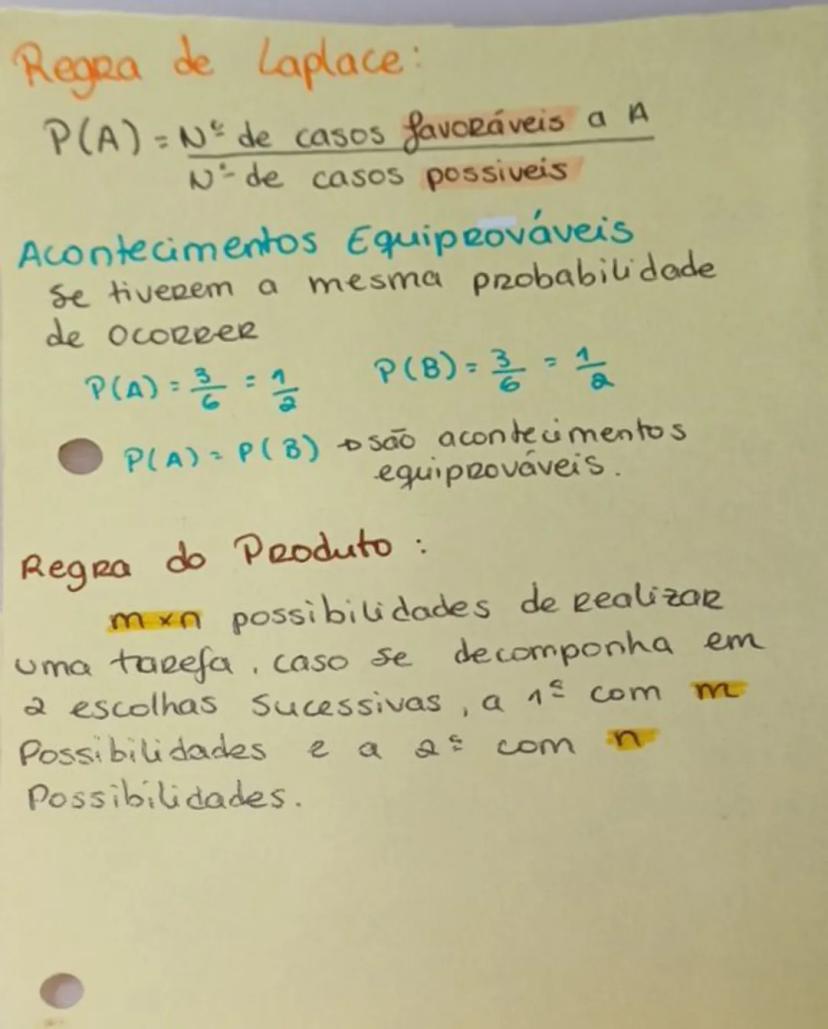 Regra de Laplace:
P(A) = Nº de casos favoráveis a A
Nº de casos possiveis
Acontecimentos Equiprováveis
se tiverem a mesma probabilidade
de ocorrer
P(A) = 3/6 = 1/2 P(B) = 3/6 = 1/2
P(A) = P(B) → são acontecimentos
equiprováveis.
Regra do Produto:
m × n possibilidades de realizar
uma tarefa, caso se decomponha em
2 escolhas sucessivas, a 1ª com m
Possibilidades e a 2ª com n
Possibilidades.